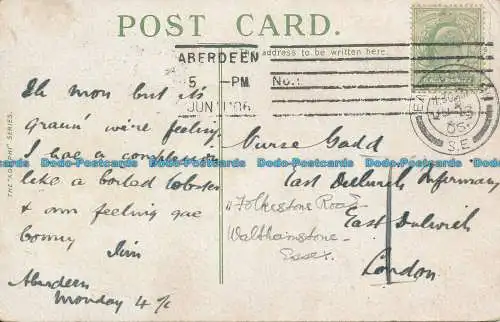 POST CARD.
The address to be written here.
ABERDEEN
5 - PM
No. 1
JUN 06
S.E
THE "KNIGHT" SERIES.
Eh mon but it's
graun' we're feeling
I hae a complexion
like a boiled lobster
& am feeling gae
bonny
Jim
Aberdeen
Monday 4/6
Nurse Gadd
East Dulwich Infirmary
East Dulwich
London
11 Folkestone Road
Walthamstone
Essex.
Dodo-Postcards Dodo-Postcards Dodo-Postcards Dodo-Postcards Dodo-Postcards